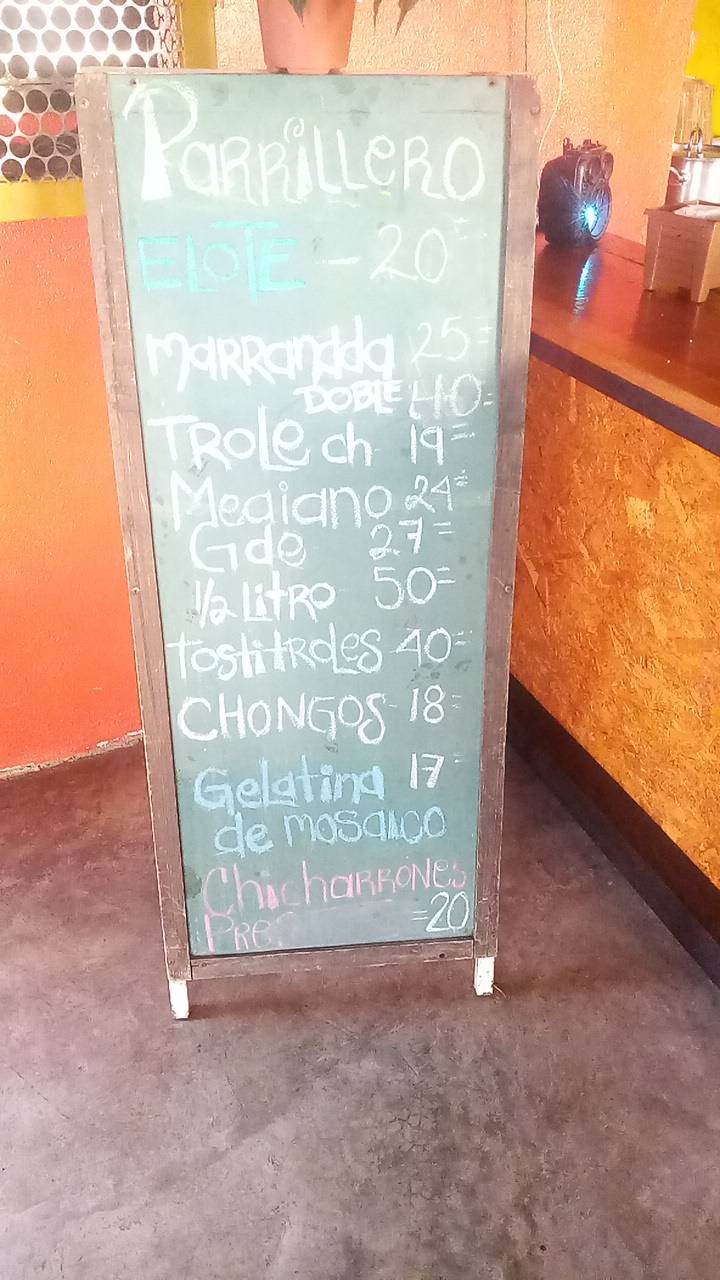 PARRILLERO
ELOTE - 20=
MARRANdda 25=
DOBLE 40=
TROLE ch 19=
Mediano 24=
Gde 27=
1/2 LitRo 50=
TostitRoLes 40=
CHONGOS 18=
Gelatina 17=
de mosaico
ChicharRONes
=20